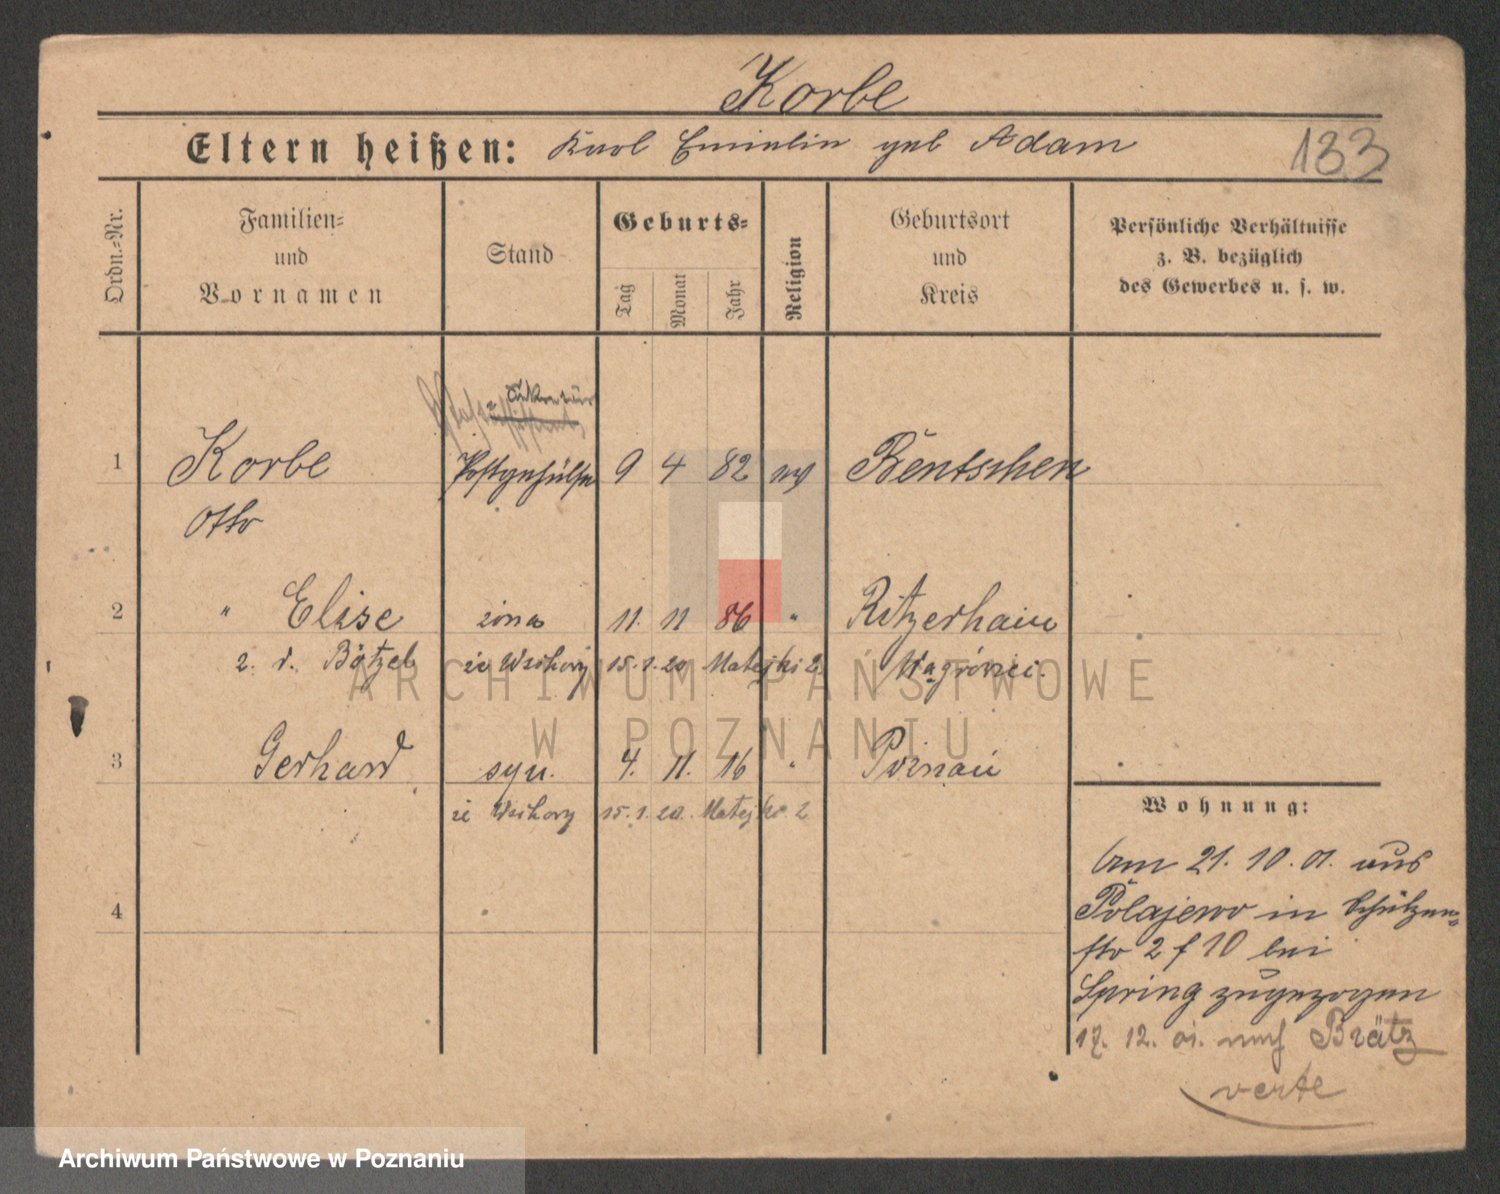 Korbe
Eltern heißen: Karl Emilie geb Adam
133
Ordn.-Nr.
Familien-
und
Vornamen
Stand
Geburts-
Tag
Monat
Jahr
Religion
Geburtsort
und
Kreis
Persönliche Verhältnisse
z. B. bezüglich
des Gewerbes u. s. w.
Sekretär
1 Korbe Postgehülfe 9 4 82 ev Bentschen
Otto
2 " Elise żona 11. 11 86 " Ritzerhain
z. d. Bötzel ze Wschowy 15.1.20 Matejki 2 Wągrówiec.
3 Gerhard syn. 4. 11. 16 " Poznań
ze Wschowy 15.1.20. Matejki 2
4
Wohnung:
Am 21. 10. 01. aus
Polajewo in Schützen-
str 2 f 10 bei
Spring zugezogen
17. 12. 01. nach Brätz
verte
ARCHIWUM PAŃSTWOWE
W POZNANIU
Archiwum Państwowe w Poznaniu